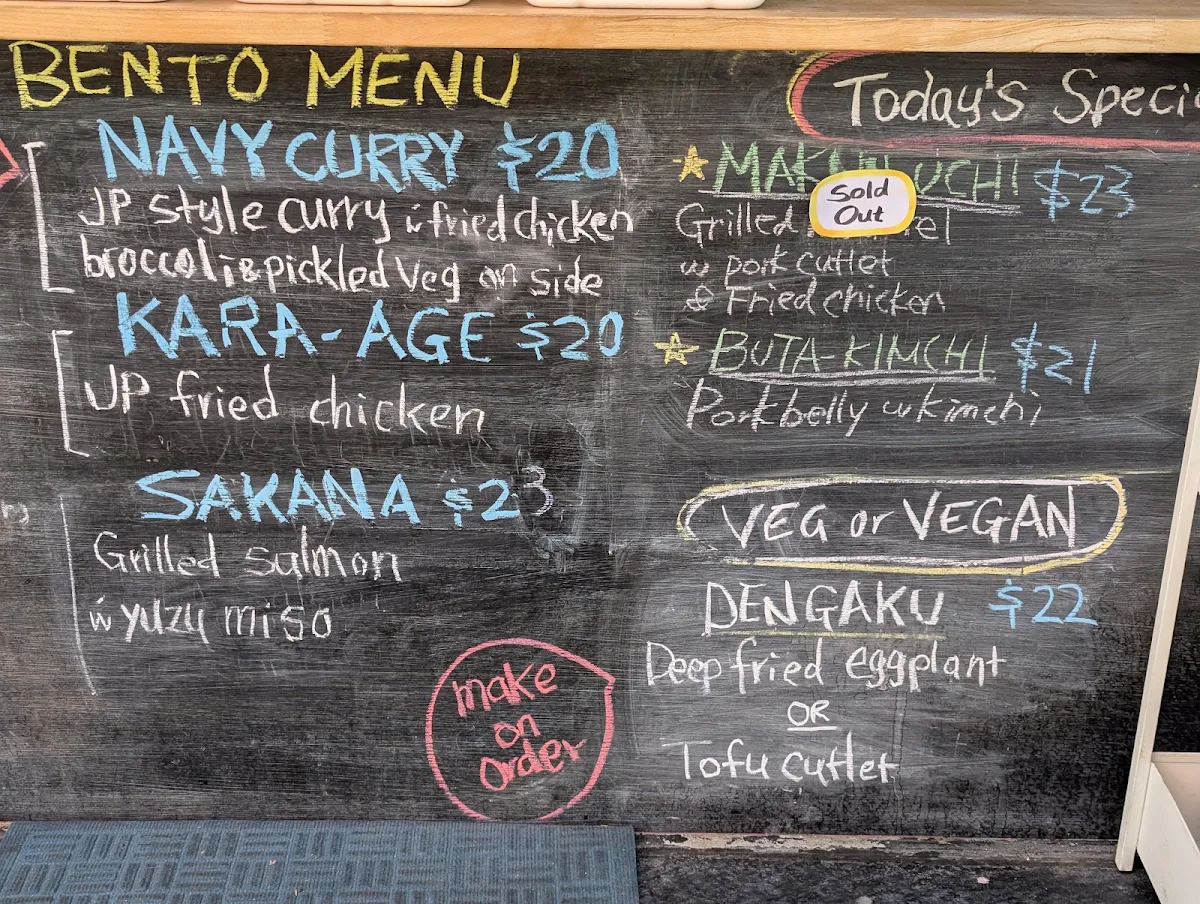 BENTO MENU
NAVY CURRY $20
JP style curry w fried chicken
broccoli & pickled veg on side
KARA-AGE $20
JP fried chicken
SAKANA $23
Grilled salmon
w yuzu miso
make
on
order
Today's Speci
MAK UCHI $23
Sold
Out
Grilled el
w pork cutlet
& Fried chicken
BUTA-KIMCHI $21
Porkbelly w kimchi
VEG or VEGAN
DENGAKU $22
Deep fried eggplant
OR
Tofu cutlet